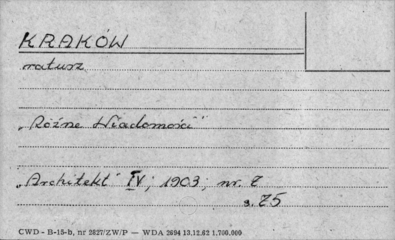 KRAKÓW
ratusz
„Różne Wiadomości"
„Architekt" IV; 1903; nr. 7
s. 75
CWD - B-15-b, nr 2827/ZW/P — WDA 2694 13.12.62 1,700.000